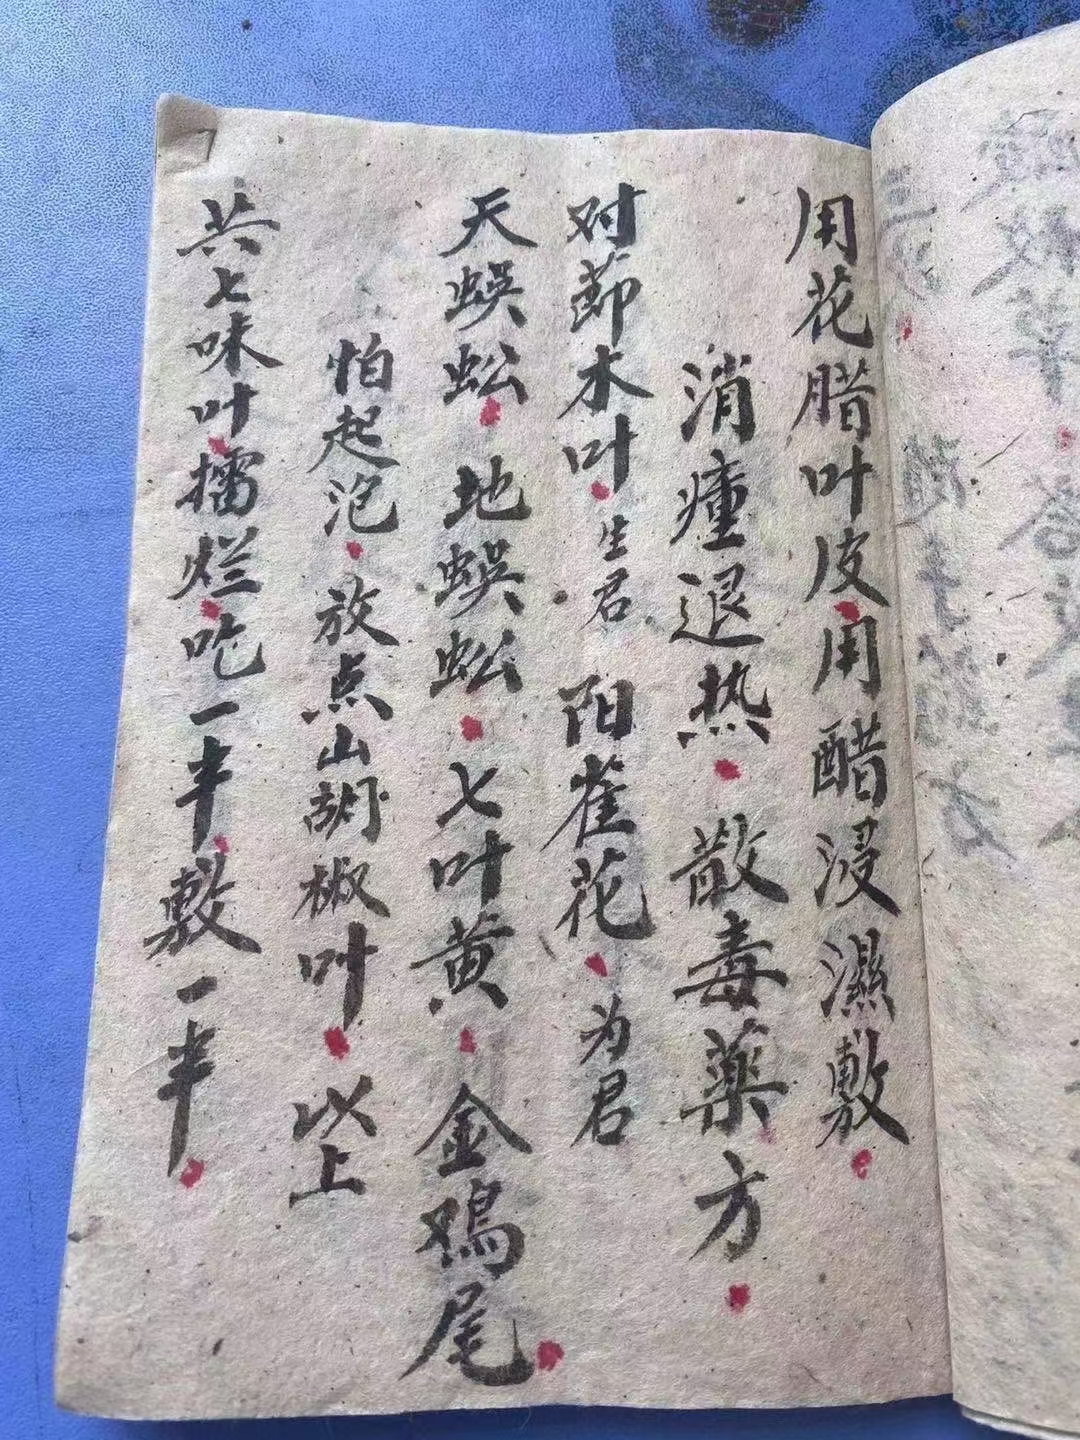 用花腊叶皮用醋浸濕敷
消瘇退热散毒薬方
对莭木叶生君阳雀花为君
天蜈蚣地蜈蚣七叶黄金鸡尾
怕起泡放点山胡椒叶以上
共七味叶擂烂吃一半敷一半